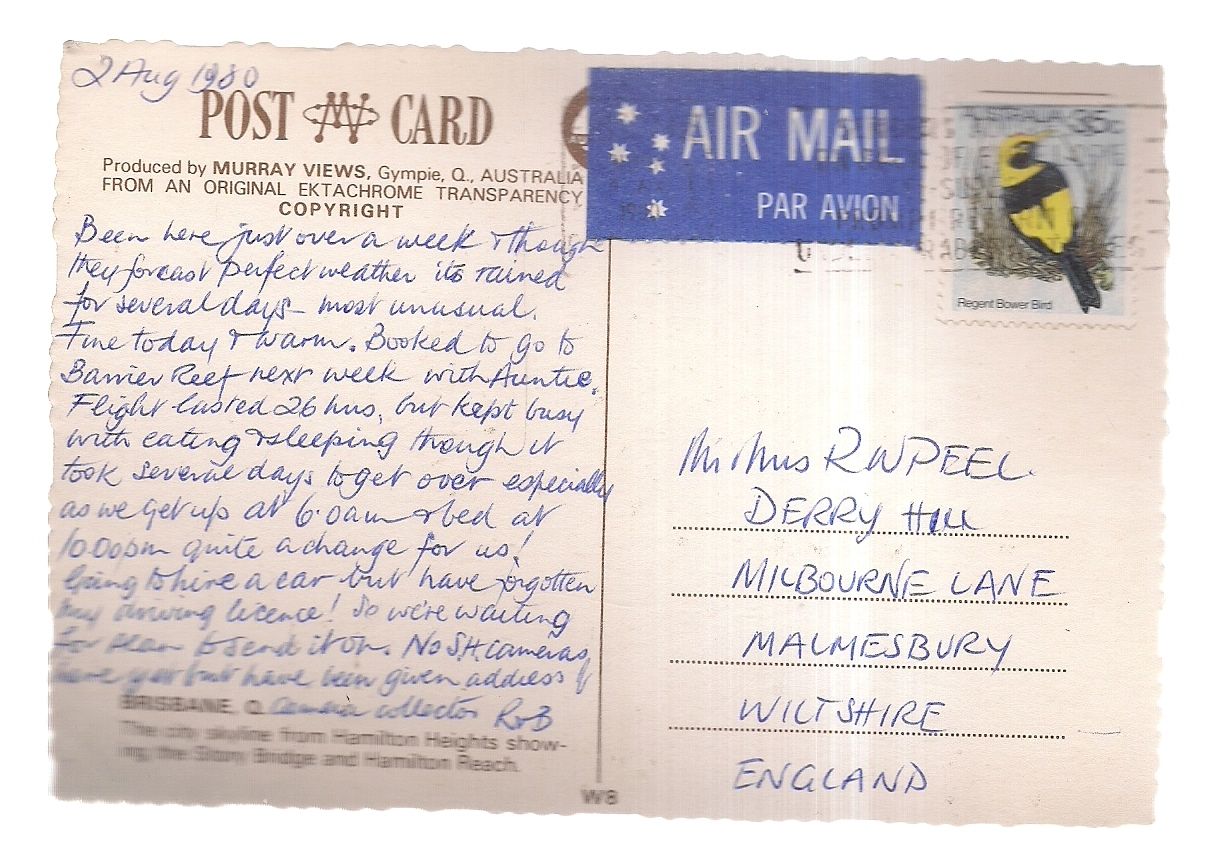 2 Aug 1980
POST CARD
Produced by MURRAY VIEWS, Gympie, Q., AUSTRALIA
FROM AN ORIGINAL EKTACHROME TRANSPARENCY
COPYRIGHT
Been here just over a week & though
they forcast perfect weather its rained
for several days – most unusual.
Fine today & warm. Booked to go to
Barrier Reef next week with Auntie.
Flight lasted 26 hrs, but kept busy
with eating & sleeping though it
took several days to get over especially
as we get up at 6.0am & bed at
10.00pm quite a change for us!
Going to hire a car but have forgotten
my driving licence! So we're waiting
for to send it on. No S.H. cameras
here yet but have been given address of
camera collector R&B
BRISBANE, Q.
The city skyline from Hamilton Heights show-
ing, the Story Bridge and Hamilton Reach.
W8
AIR MAIL
PAR AVION
AUSTRALIA 35c
Regent Bower Bird
Mr & Mrs R W PEEL.
DERRY HILL
MILBOURNE LANE
MALMESBURY
WILTSHIRE
ENGLAND